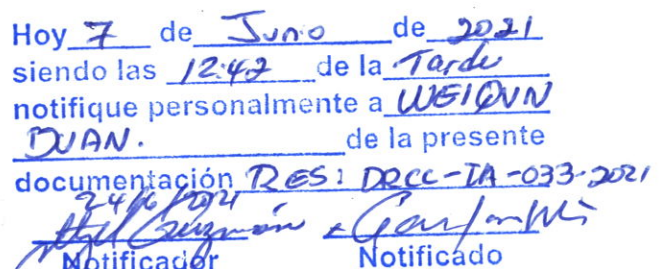 Hoy 7 de Junio de 2021
siendo las 12:42 de la Tarde
notifique personalmente a WEIQUN
DUAN. de la presente
documentación RES: DRCC-IA-033-2021
Guzmán
Notificador Notificado